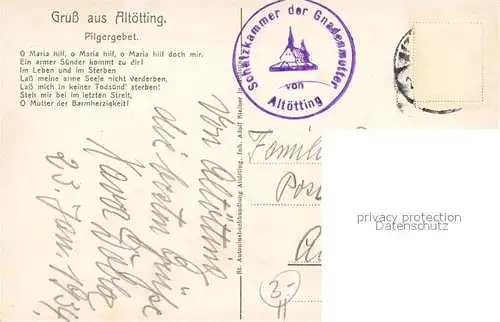 Gruß aus Altötting.
Pilgergebet.
O Maria hilf, o Maria hilf, o Maria hilf doch mir,
Ein armer Sünder kommt zu dir!
Im Leben und im Sterben
Laß meine arme Seele nicht verderben,
Laß mich in keiner Todsünd' sterben!
Steh mir bei im letzten Streit,
O Mutter der Barmherzigkeit!
Von Altötting
die besten Grüße
23. Jan. 1934.
St. Antoniusbuchhandlung Altötting, Inh. Adolf Steiner
Schatzkammer der Gnadenmutter
von
Altötting
Famili
Pos
A
3.-
privacy protection
Datenschutz